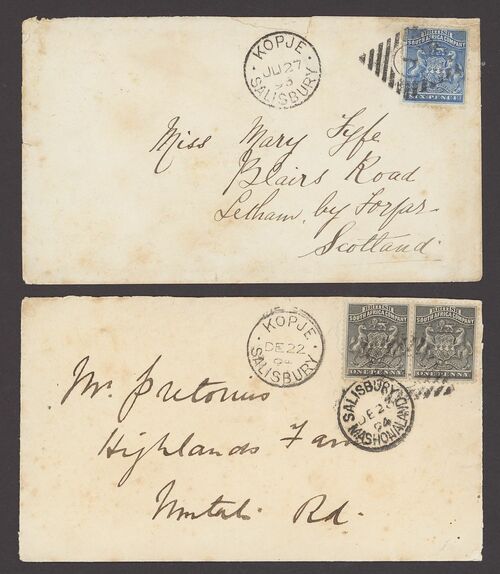 KOPJE
JU 27
93
SALISBURY
BRITISH
SOUTH AFRICA COMPANY
SIX PENCE
Miss Mary Fyfe
Blairs Road
Letham, by Forfar
Scotland
KOPJE
DE 22
94
SALISBURY
BRITISH
SOUTH AFRICA COMPANY
ONE PENNY
BRITISH
SOUTH AFRICA COMPANY
ONE PENNY
SALISBURY
94
Mr. Pretorius
Highlands Farm
Umtali Rd.